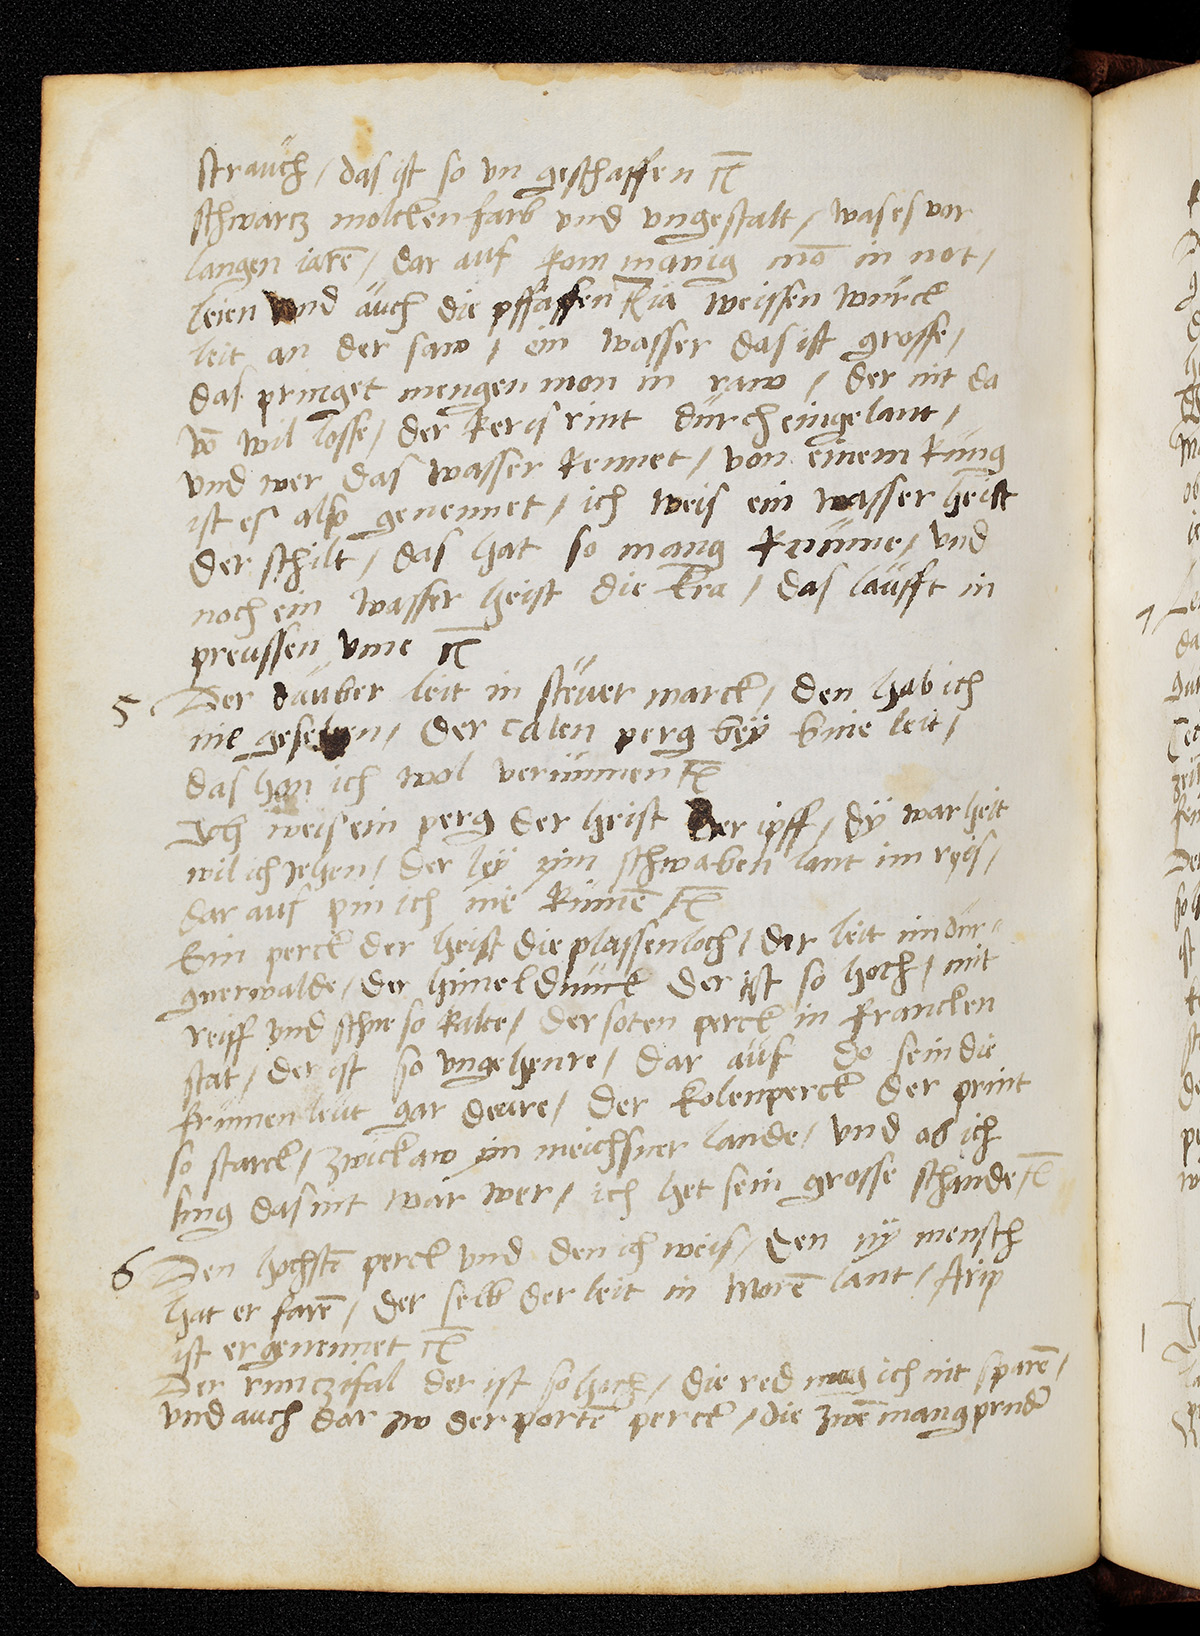 strauch / das ist so un geschaffen
schwartz molcken farb und ungestalt / was es vor
langen iarē / dar auf kom manig mō in not /
leien und auch die pffaffen ia weissen würck
leit an der saw / ein wasser das ist grosse /
das pringet mengen mon in raw / der nit da
vō wil losse / der keris rint dürch eingelant /
und wer das wasser kennet / von einem küng
ist es alp genennet / ich weis ein wasser heist
der schilt / das hat so mang krümme / und
noch ein wasser heist die kra / das laufft in
preüssen ume
5 Der däuber leit in steüer marck / den hab ich
nie gesehen / der calen perg beÿ wine leit /
das han ich wol vernummen
Ich weis ein perg der heist der ipff / dÿ warheit
wil ich jehen / der leÿ ÿm schwaben lant im rÿs /
dar auf pin ich nie kumē
Ein perck der heist die plassenloch / der leit im dür=
gerwalde / der himel der ist so hoch / mit
reiff und schne so kalte / der soten perck in francken
stat / der ist so ungeheüre / dar auf do sein die
frümen leüt gar deure / der kolenperck der print
so starck / zwickaw ÿm meichsner lande / und ob ich
sing das nit war wer / ich het sein grosse schande
6 Den hochstē perck und den ich weis / den nÿ mensch
hat er farē / der selb der leit in morē lant / Arip
ist er genennet
Der runczifal der ist so hoch / die red mag ich nit sparē /
und auch dar zw der portē perck / die zwē mang prudͤ
1